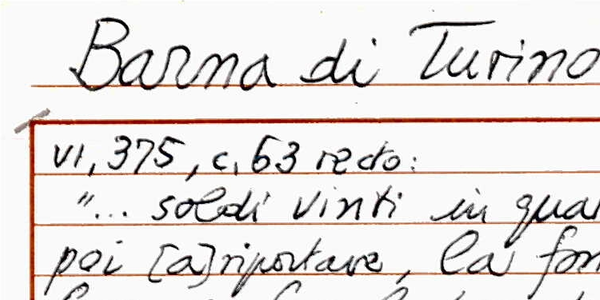 Barna di Turino
VI, 375, c. 63 recto:
"... soldi vinti in qua
poi [a]riportare, la fon